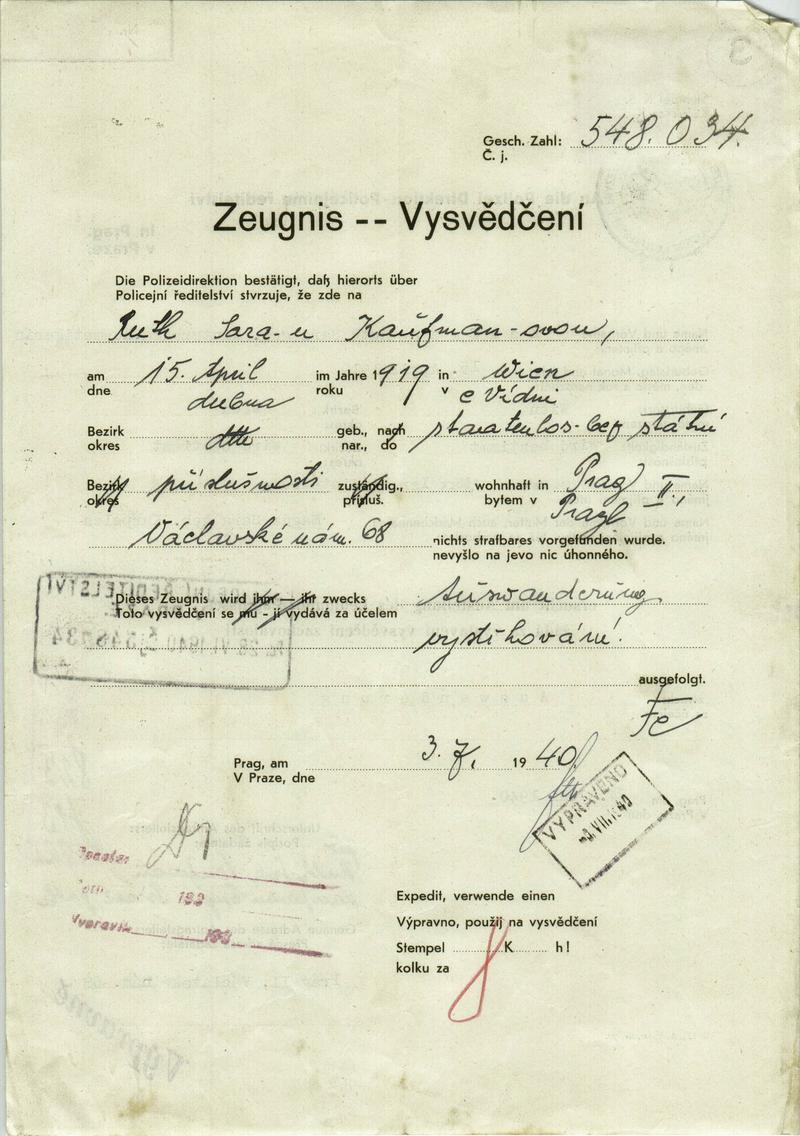 Gesch. Zahl: 548.034.
Č. j.
Zeugnis -- Vysvědčení
Die Polizeidirektion bestätigt, daß hierorts über
Policejní ředitelství stvrzuje, že zde na
Ruth Sara-u Kaufman-ovou,
am 15. April im Jahre 1919 in Wien
dne dubna roku v e Vídni
Bezirk dtto geb., nach staatenlos-bez státní
okres nar., do
Bezirk příslušnosti zuständig., wohnhaft in Prag II.,
okres přísluš. bytem v
Václavské nám. 68 nichts strafbares vorgefunden wurde.
nevyšlo na jevo nic úhonného.
Dieses Zeugnis wird ihm — ihr zwecks Auswanderung
Toto vysvědčení se mu - jí vydává za účelem
vystěhování.
ausgefolgt.
Fe
Prag, am 3. 7. 1940
V Praze, dne
VYPRAVENO
VII. 1940
Expedit, verwende einen
Výpravno, použij na vysvědčení
Stempel K h!
kolku za
193
193